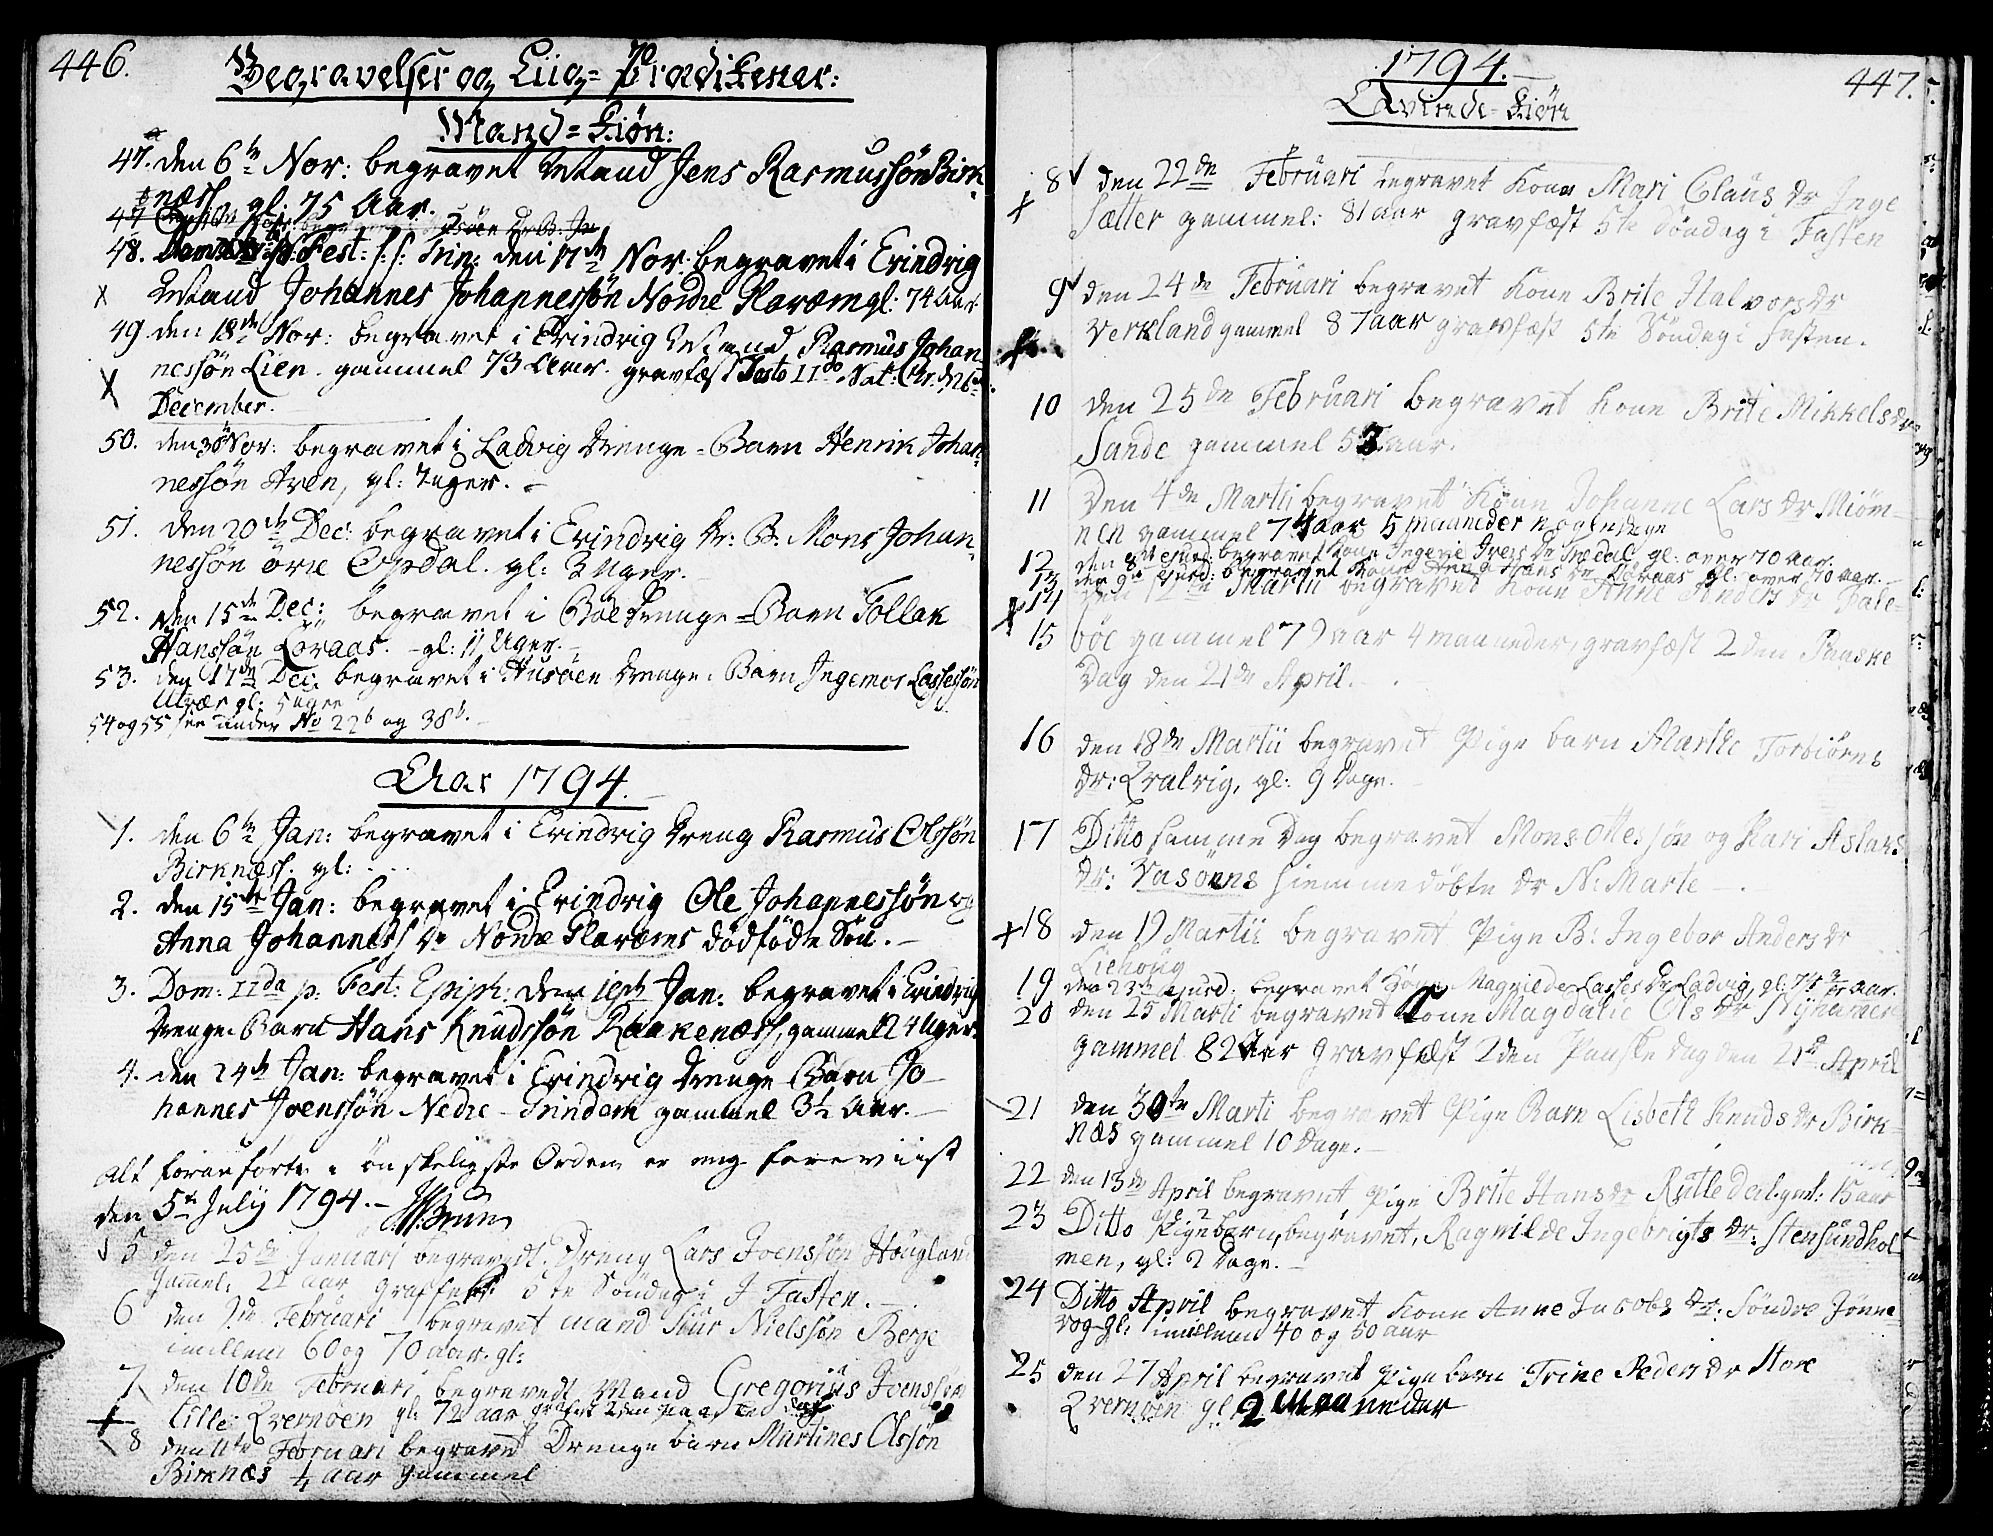 446.
Begravelser og Liig-Prædikener:
Mand-Kiøn:
47. den 6te Nor: begravet Mand Jens Rasmussøn Birk
næss gl: 75 Aar.
48. Fest: Trin: den 17de Nor: begravet i Erindrig
Mand Johannes Johannessøn Nordre gl: 74 Aar
49 den 18de Nor: begravet i Erindrig Mand Rasmus Johan-
nessøn Lien. gammel 73 Aar. gravfæst Festo II do Nat: Chr. d. 26
December.
50. den 30 Nor: begravet i Ladvig Drenge-Barn Henrik Johan-
nessøn Tren, gl: 7 uger.
51. den 20de Dec: begravet i Erindrig Dr: B: Mons Johan-
nessøn örre Opdal. gl: 3 Uger.
52. den 15de Dec: begravet i Böe Drenge-Barn Tollak
Hanssøn Leraas. gl: 11 Uger.
53. den 17de Dec: begravet i Husöen Drenge-Barn Ingemor Lassessøn
Utvær gl: 5 uger
54 og 55 see under No 22b og 38b.
Aar 1794.
1. den 6te Jan: begravet i Erindrig Dreng Rasmus Olssøn
Birknæss. gl: ...
2. den 15de Jan: begravet i Erindrig Ole Johannessøn og
Anna Johanness Dr Nordre dödföde Søn.
3. Dom: IIda p: Fest: Epiph: den Jan: begravet i Erindrig
Drenge-Barn Hans Knudssøn Raakenæss, gammel 24 Uger.
4. den 24de Jan: begravet i Erindrig Drenge-Barn Jo-
hannes Joenssøn Nedre-Trindem gammel 3½ Aar.
alt foranførte i ön skeligste Orden er mig foreviist
den 5te July 1794.
5 den 25de Januari begravedt Dreng Lars Joenssøn Hougland
Gammel: 21 aar 5te Søndag i Fasten.
6 den Februari begravet mand Siur Nielssøn Berge
imillem 60 og 70 aar. gl:
7 den 10de Februari begravedt Mand Gregorius Joenssøn
Lille Qvernöen gl: 72 aar
8 den 11te Februari begravet Drengebarn Martines Olssøn
Birknæs ¼ aar gammel
1794.
447.
Qvinde-Kiøn
8 den 22de Februari begravet Kone Mari Claus Dr Inge
Sætter gammel: 81 aar gravfæst 5te Søndag i Fasten
9 den 24de Februari begravet Kone Brite Halvors Dr
Verkland gammel 87 aar gravfæst 5te Söndag i Fasten.
10 den 25de Februari begravet Kone Brite Mikkels Dr
Sande gammel aar.
11 Den 4de Martii begravet Kone Johanne Lars Dr Miöm-
nen gammel 74 aar 5 maaneder nogle Dage
12 den 8de ejusd: begravet Kone Ingerie Ivers Dr gl: over 70 aar.
13 den 9de ejusd: begravet Kone Anna Hans Dr gl: over 70 aar.
14 den 12te Martii begravet Kone Anne Anders Dr Dale-
15 böe gammel 79 aar 4 maaneder, gravfæst 2den Paaske
Dag den 21de April.
16 den 18de Martii begravet Pige barn Marthe Torbiörns
Dr: Qvalvig, gl: 9 Dage.
17 Ditto samme Dag begravet Mons Ottessøn og Kari Aslaks
Dr: Vasöens hiemmedöbte Dr N: Marte
18 den 19 Martii begravet Pige B: Ingebor Anders Dr
Liehoug
19 den 23de ejusd: begravet Kone Magnilde Lasses Dr Ladvig, gl: 74 aar.
20 den 25 Marti begravet Kone Magdalie Ols Dr
gammel 82 aar gravfæst 2den Paaske dag den 21de April
21 den 30te Marti begravet Pige Barn Lisbeth Knuds Dr Birk-
næs gammel 10 Dage.
22 den 13de April begravet, Pige Brite Hans Dr gml: 15 aar
23 Ditto Pigebarn, begravet, Ragnilde Ingebrigts Dr: Stensundhol-
men, gl: 2 Dage.
24 Ditto April begravet Kone Anne Jacobs Dr: Söndre Jönne
vog gl: imellem 40 og 50 aar
25 den 27 April begravet Pige barn Trine Peders Dr Store
Qvernöen gl: 2 Maaneder